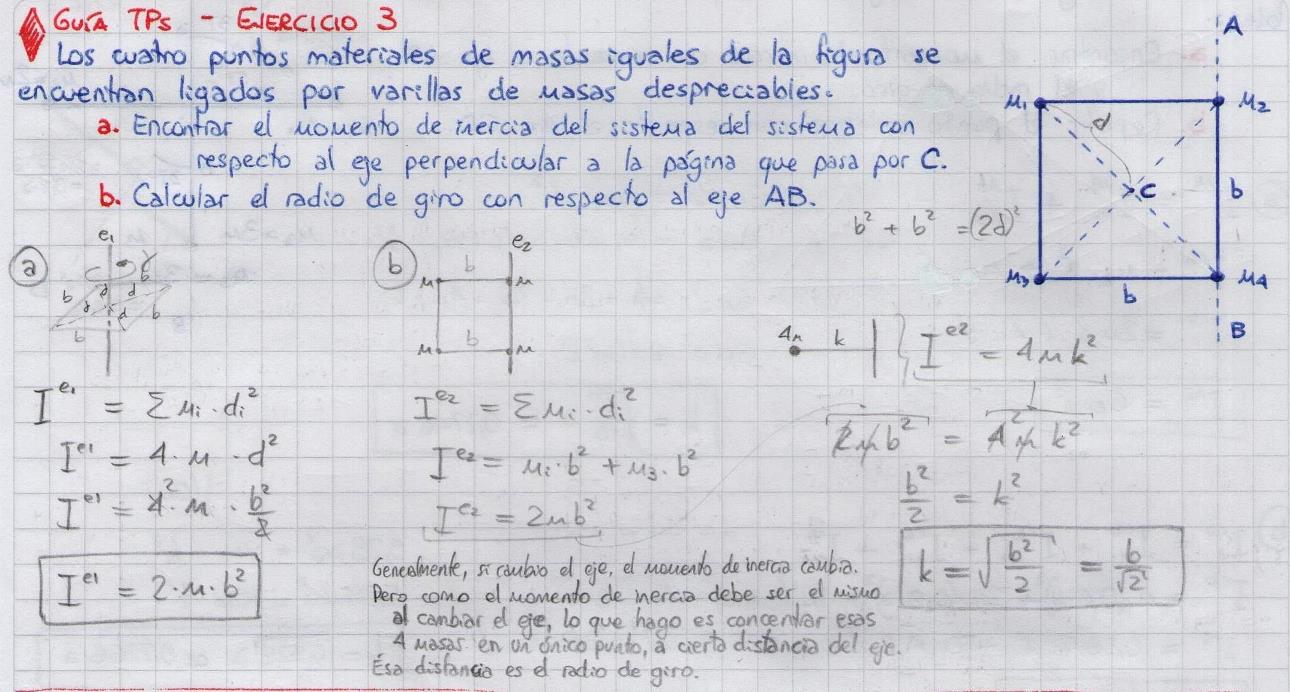 GUÍA TPs - EJERCICIO 3
Los cuatro puntos materiales de masas iguales de la figura se
encuentran ligados por varillas de masas despreciables.
a. Encontrar el momento de inercia del sistema del sistema con
respecto al eje perpendicular a la página que pasa por C.
b. Calcular el radio de giro con respecto al eje AB.
A
M1
M2
d
C
b
M3
M4
b
B
b² + b² = (2d)²
a
e1
b
b
d
d
d
d
b
b
b
e2
m
b
m
m
b
m
I^e1 = Σ mi · di²
I^e1 = 4 · m · d²
I^e1 = 4² · m · b²/2
I^e1 = 2 · m · b²
I^e2 = Σ mi · di²
I^e2 = mi · b² + m3 · b²
I^e2 = 2mb²
4m
k
I^e2 = 4mk²
2mb² = 4² m k²
b²/2 = k²
k = √(b²/2) = b/√2
Generalmente, si cambio el eje, el momento de inercia cambia.
Pero como el momento de inercia debe ser el mismo
al cambiar el eje, lo que hago es concentrar esas
4 masas en un único punto, a cierta distancia del eje.
Ésa distancia es el radio de giro.